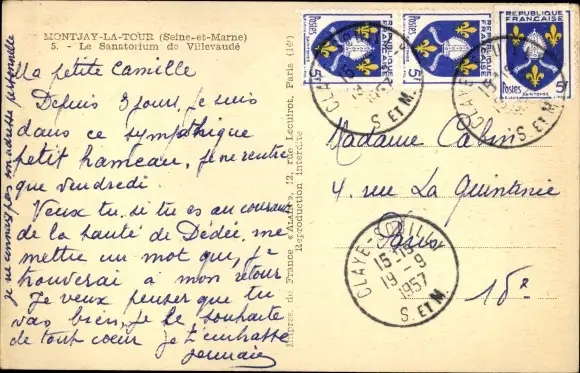 MONTJAY-LA-TOUR (Seine-et-Marne)
5. - Le Sanatorium de Villevaudé
Ma petite Camille
Depuis 3 jours, je suis
dans ce sympathique
petit hameau, je ne rentre
que vendredi.
Veux tu, si tu es au courant
de la santé de Dédée, me
mettre un mot que, je
trouverai à mon retour
Je veux penser que tu
vas bien, je le souhaite
de tout coeur je t'embrasse
Germaine
je ne connais pas son adresse personnelle
Impres. de France « ALFA », 12, rue Lecuirot, Paris (14e)
Reproduction interdite
Postes
5F
Postes
RÉPUBLIQUE FRANÇAISE
5F
RÉPUBLIQUE FRANÇAISE
Postes
SAINTONGE
5F
CLAYE
S. ET M.
CLAYE
S. ET M.
Madame Cabin
4, rue La Quintinie
Paris
15e
CLAYE-SOUILLY
15-15
19-9
1957
S. ET M.